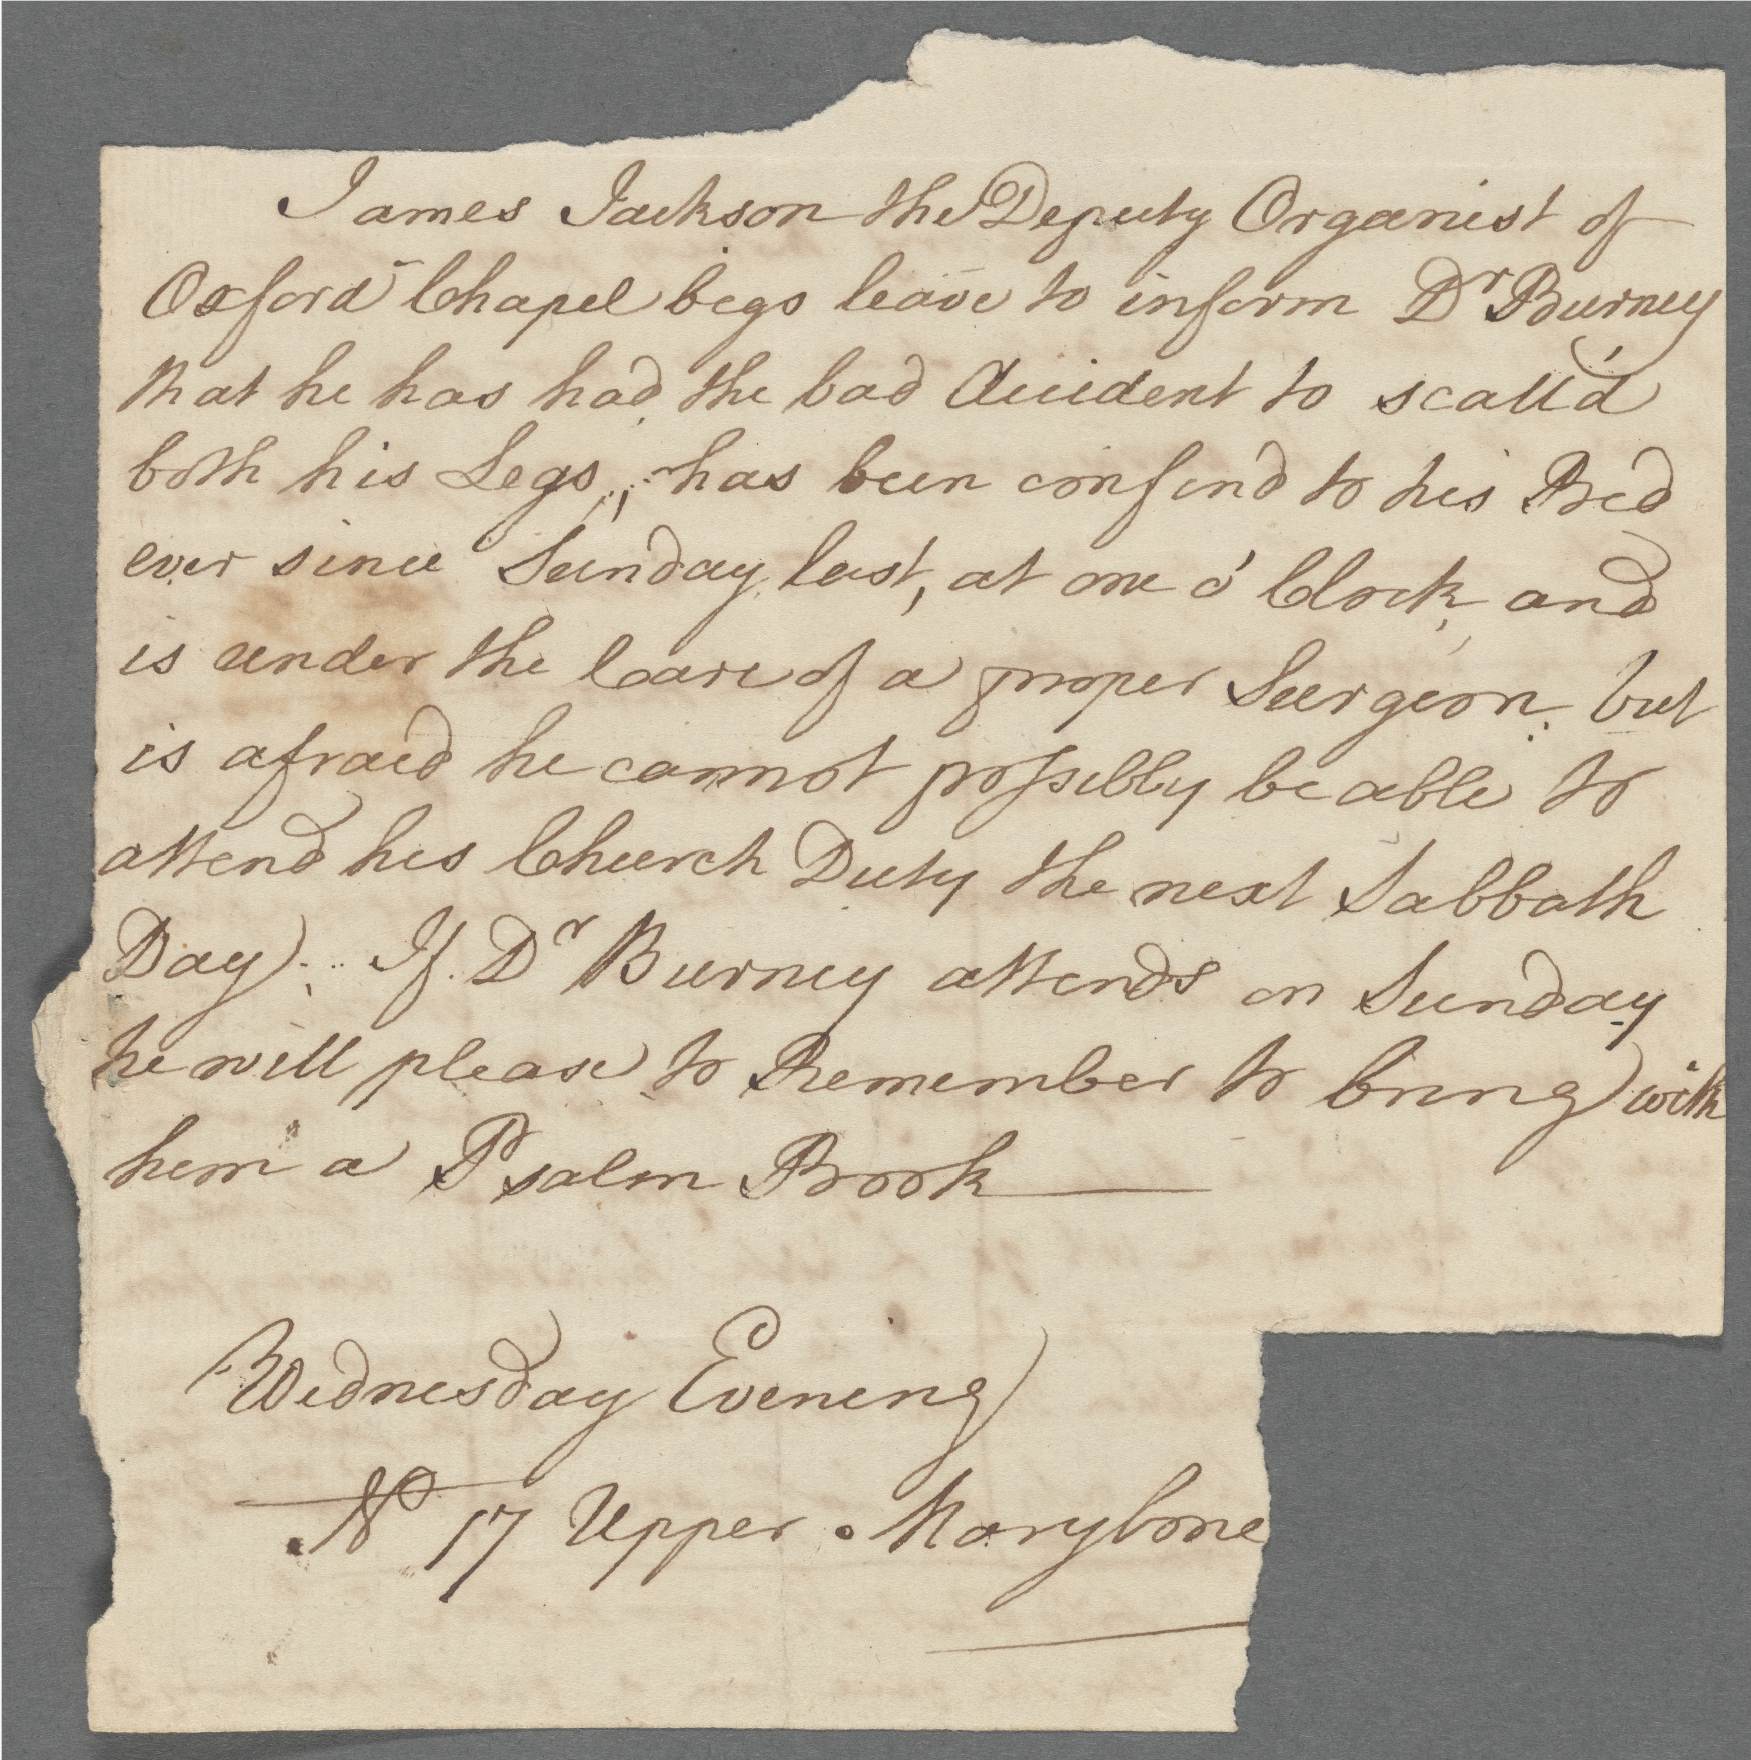 James Jackson the Deputy Organist of
Oxford Chapel begs leave to inform Dr Burney
that he has had the bad Accident to scall'd
both his Legs, has been confind to his Bed
ever since Sunday last, at one o' Clock, and
is under the Care of a proper Surgeon. but
is afraid he cannot possibly be able to
attend his Church Duty the next Sabbath
Day. If Dr Burney attends on Sunday
he will please to Remember to bring with
him a Psalm Book
Wednesday Evening
No 17 Upper Marybone